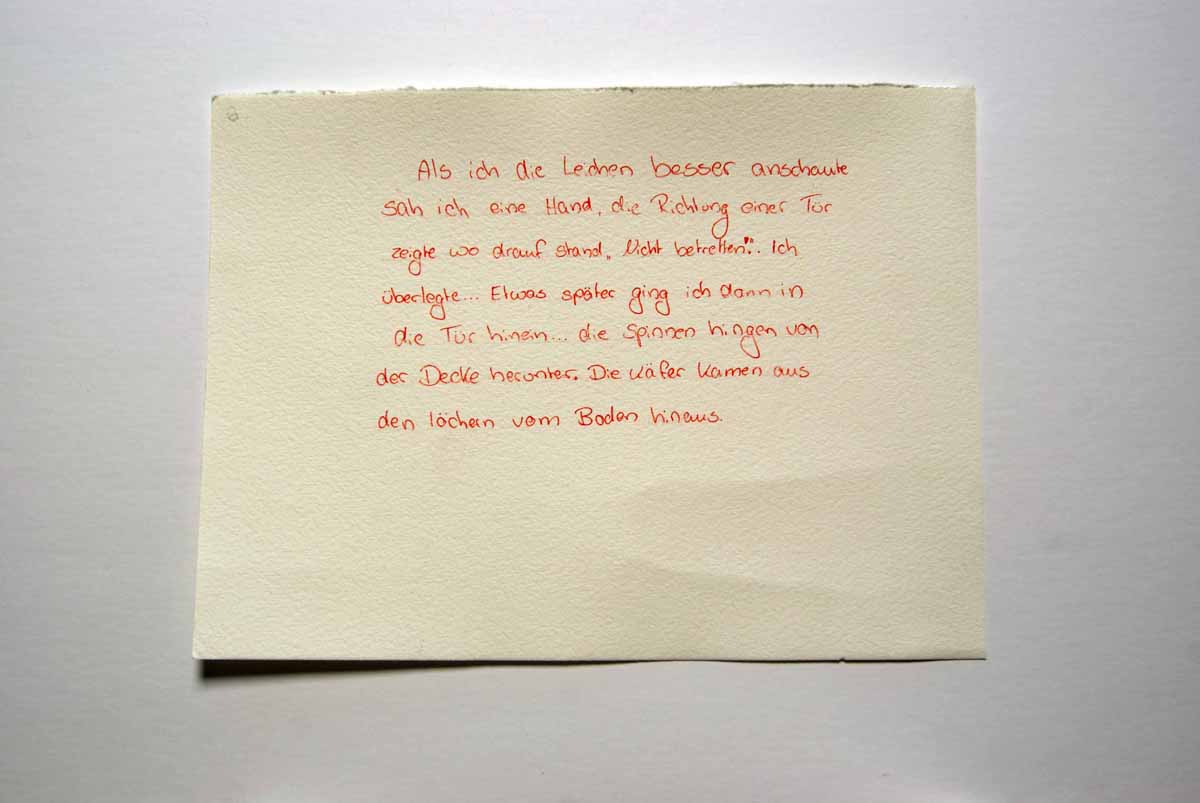 Als ich die Leichen besser anschaute
sah ich eine Hand, die Richtung einer Tür
zeigte wo drauf stand „Nicht betretten!". Ich
überlegte... Etwas später ging ich dann in
die Tür hinein... die Spinnen hingen von
der Decke herunter. Die Käfer kamen aus
den löchern vom Boden hinaus.